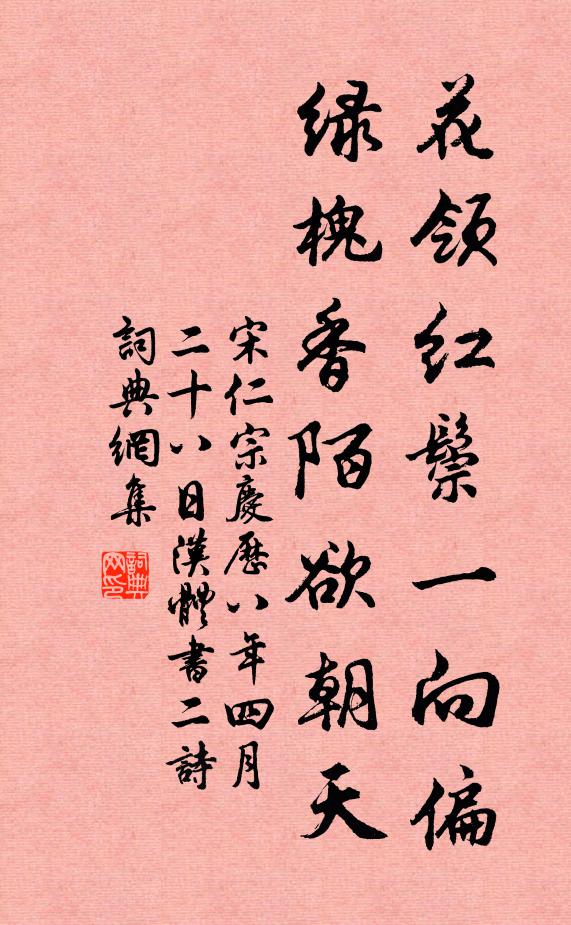 花领红鬃一向偏
绿槐香陌欲朝天
宋仁宗慶歷八年四月
二十八日漢體書二詩
詞典網集
詞典網印